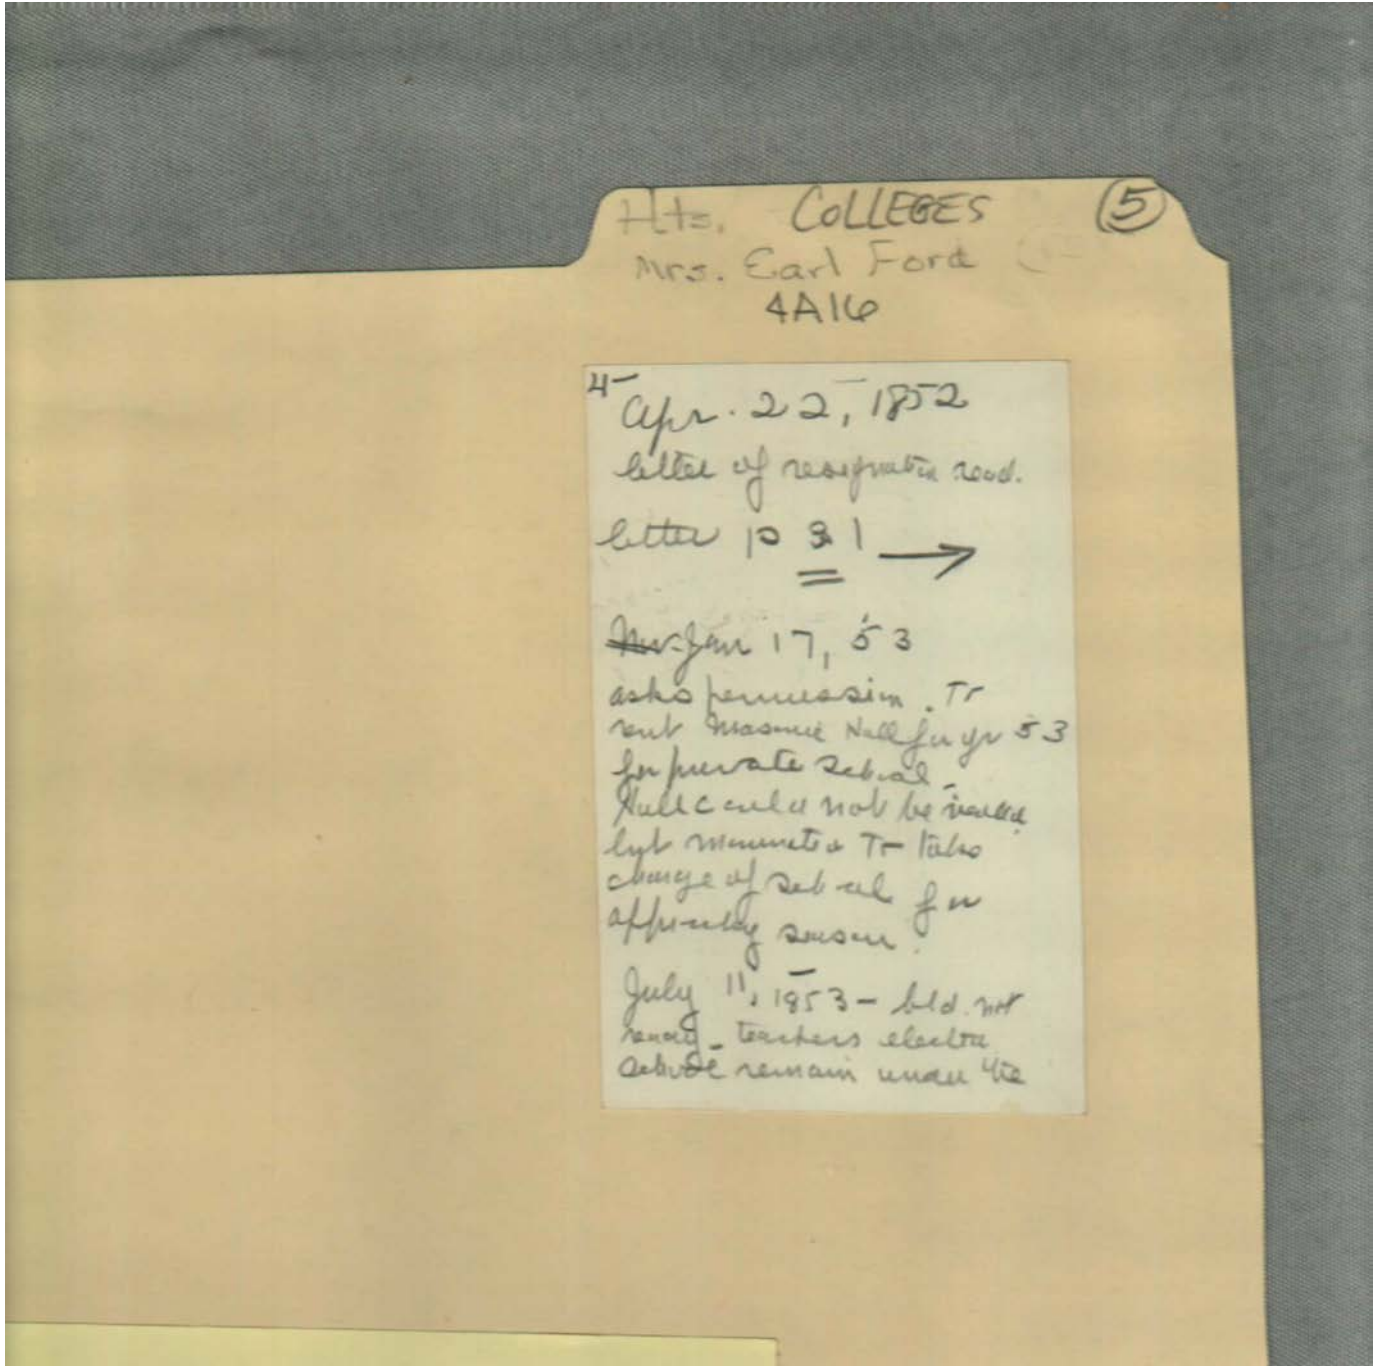 Hts. COLLEGES 5
Mrs. Earl Ford
4A16
4-
Apr. 22, 1852
letter of resignation read.
letter p 31 →
Jan 17, 53
asks permission. To
rent Masonic Hall for yr 53
for private school -
Hall could not be
but To take
charge of school for
season.
July 11, 1853 - bld. not
ready - teachers elected
remain under the